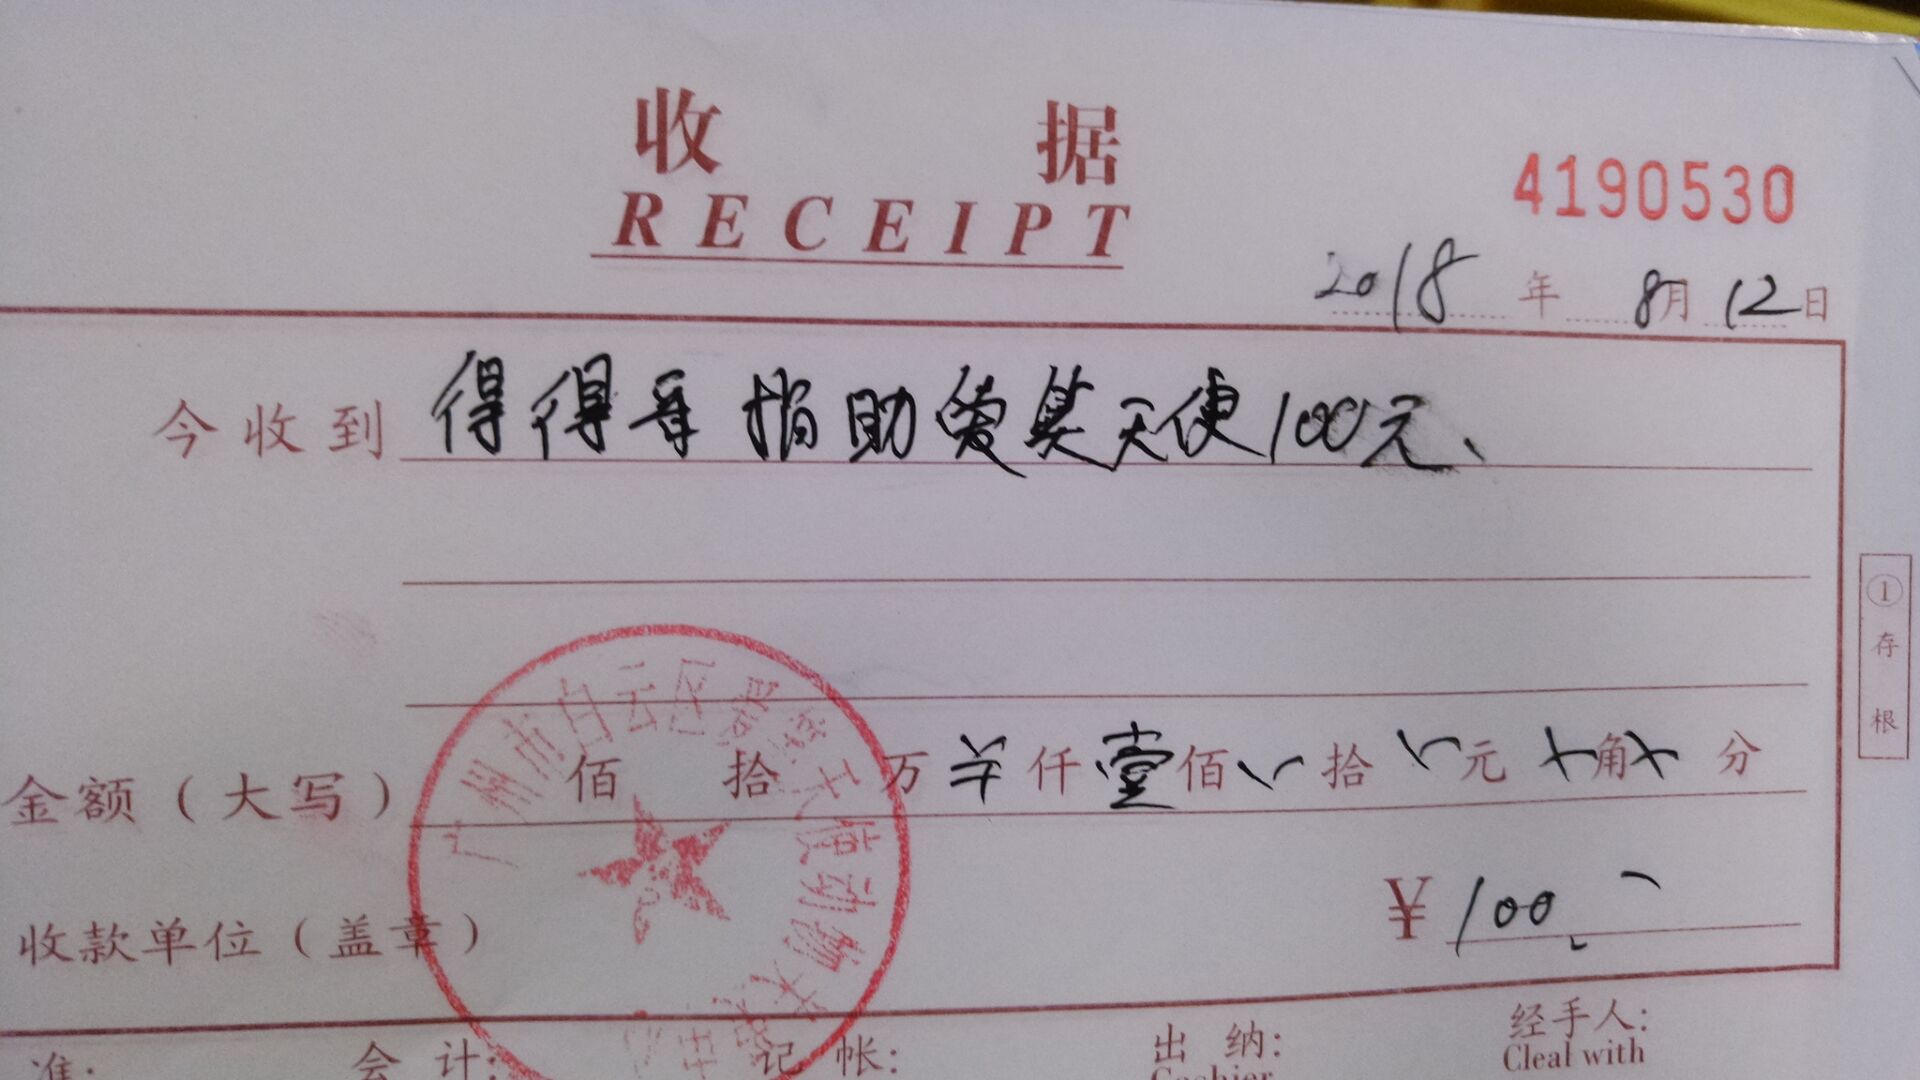 收据
RECEIPT
4190530
2018年8月12日
今收到 得得哥捐助爱其天使100元、
①存根
金额（大写） 佰 拾 万 仟壹佰 拾 元 角 分
收款单位（盖章） ¥100.
广州市白云区 天使动物关
准: 会计: 记帐: 出纳: 经手人:
Cashier Cleal with